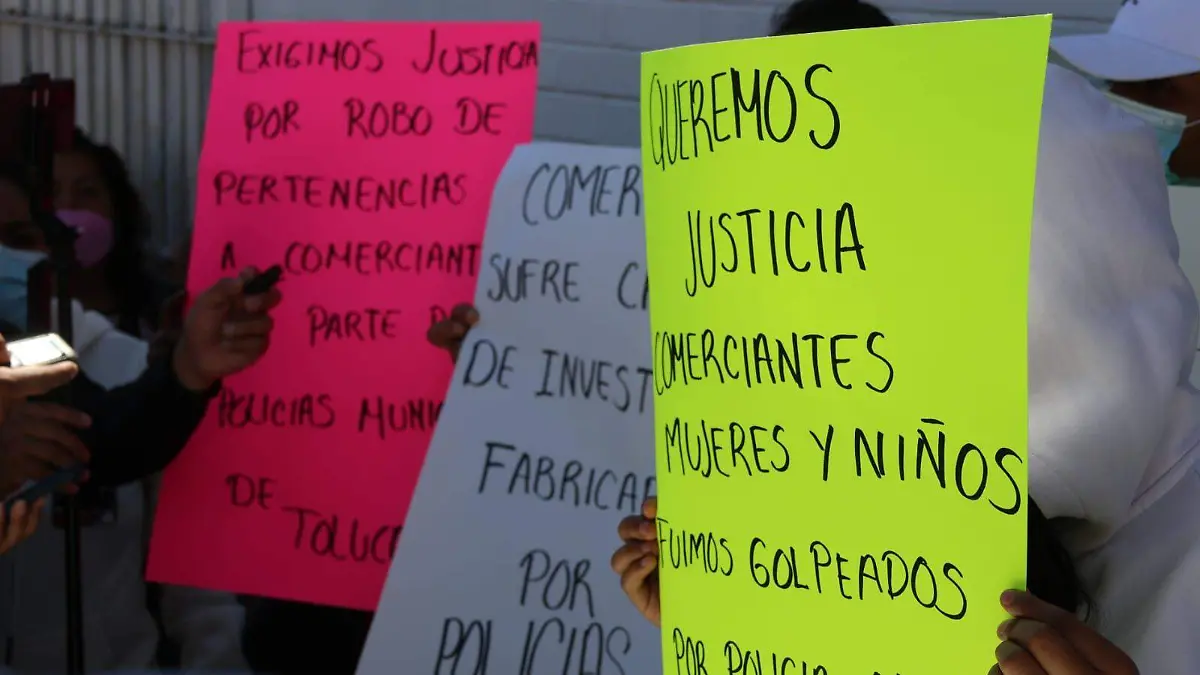 EXIGIMOS JUSTICIA
POR ROBO DE
PERTENENCIAS
A COMERCIANT
PARTE
POLICIAS MUNI
DE
TOLUC
COMER
SUFRE
DE INVEST
FABRICA
POR
POLICIAS
QUEREMOS
JUSTICIA
COMERCIANTES
MUJERES Y NIÑOS
FUIMOS GOLPEADOS
POR POLICIA